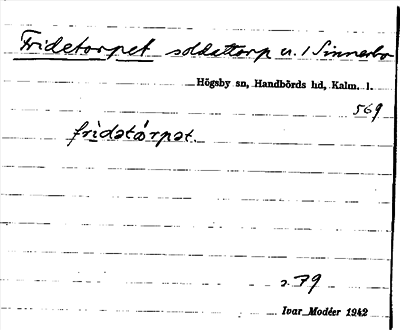 Fridetorpet soldattorp u. / Sinnerbo
Högsby sn, Handbörds hd, Kalm. l.
569
fridetórpet.
s. 79
Ivar Modéer 1942